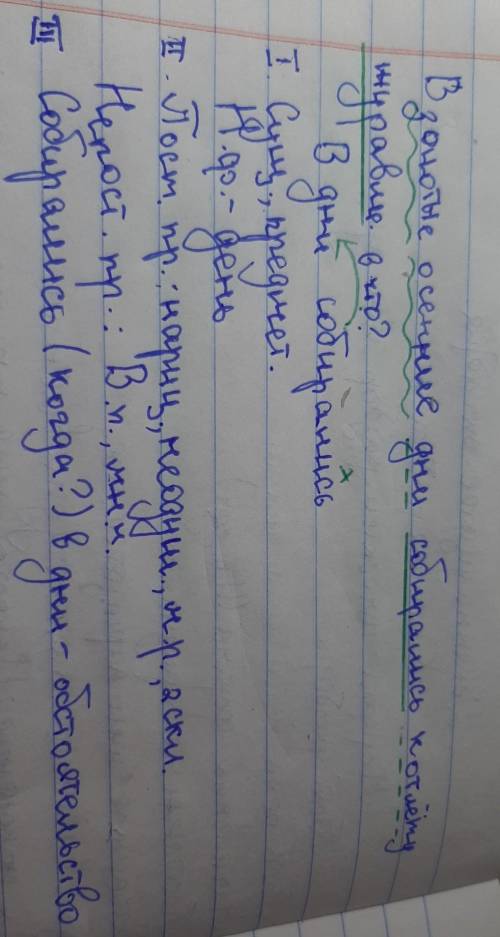 В золотые осенние дни собирались к отлёту
журавли. в кто?
В дни собирались
х
I. Сущ., предмет.
Н.ф. - день
II. Пост. пр.: нариц., неодуш., м.р., 2 скл.
Непост. пр.: В.п., мн.ч.
III Собирались (когда?) в дни - обстоятельство